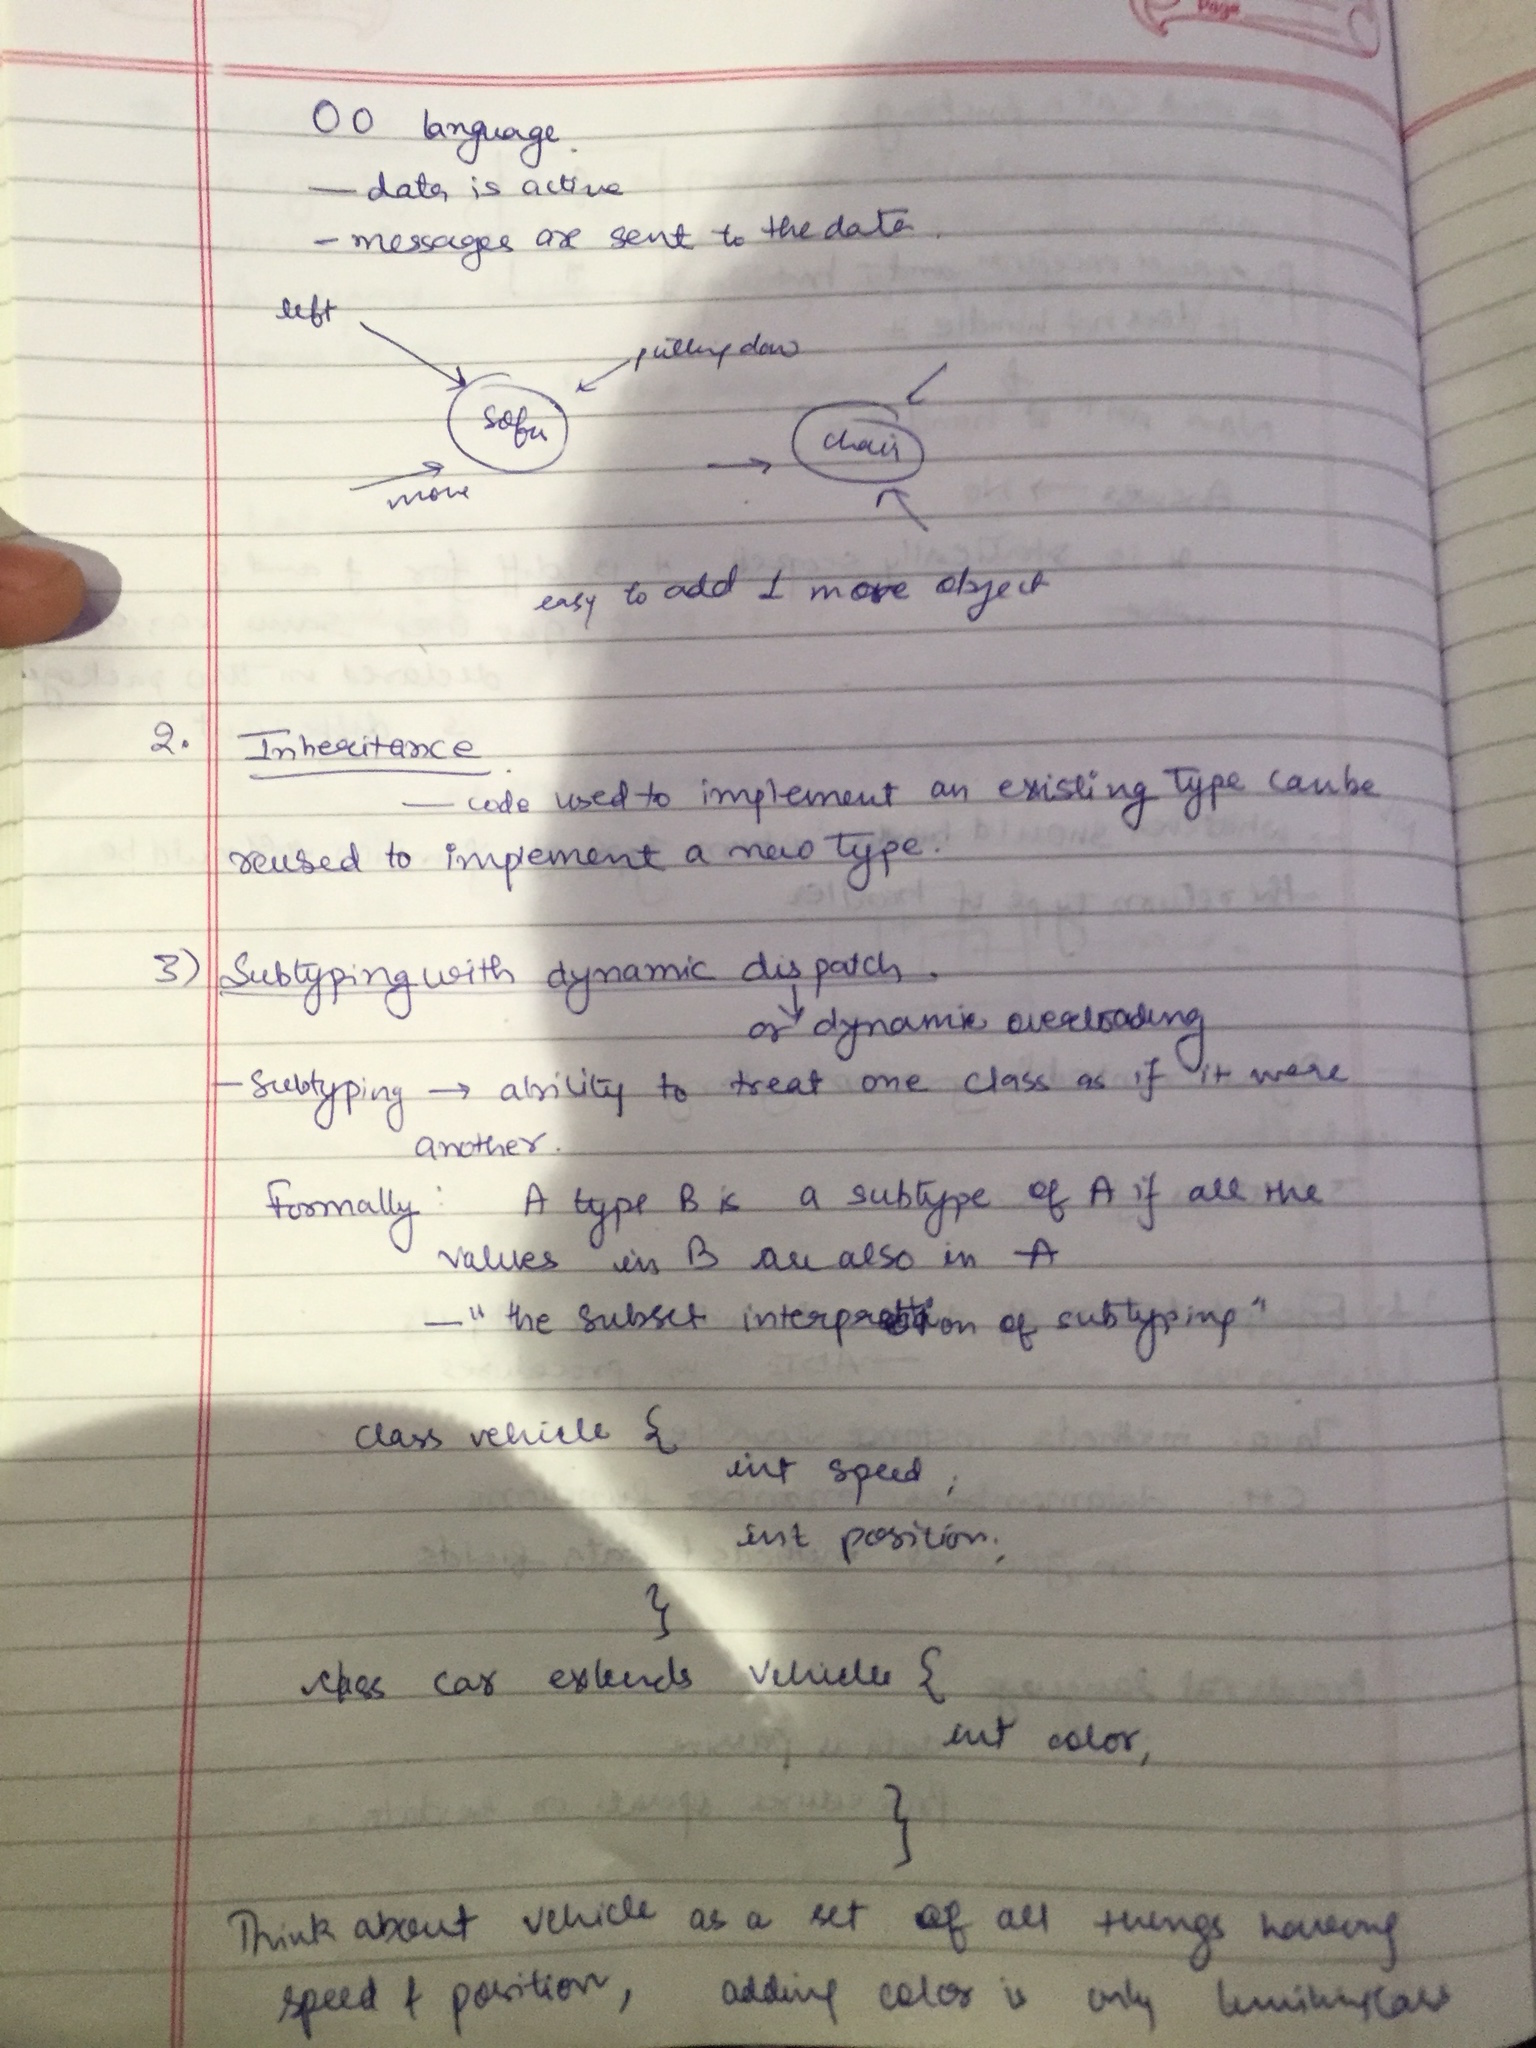 Page
OO language.
— data is active
- messages are sent to the data.
left
pulling down
sofa
chair
move
easy to add 1 more object
2. Inheritance.
— code used to implement an existing type can be
reused to implement a new type.
3) Subtyping with dynamic dispatch.
or dynamic overloading
- Subtyping → ability to treat one class as if it were
another.
Formally: A type B is a subtype of A if all the
values in B are also in A
— "the subset interpretation of subtyping"
class vehicle {
int speed;
int position;
}
class car extends vehicle {
int color,
}
Think about vehicle as a set of all things having
speed & position, adding color is only